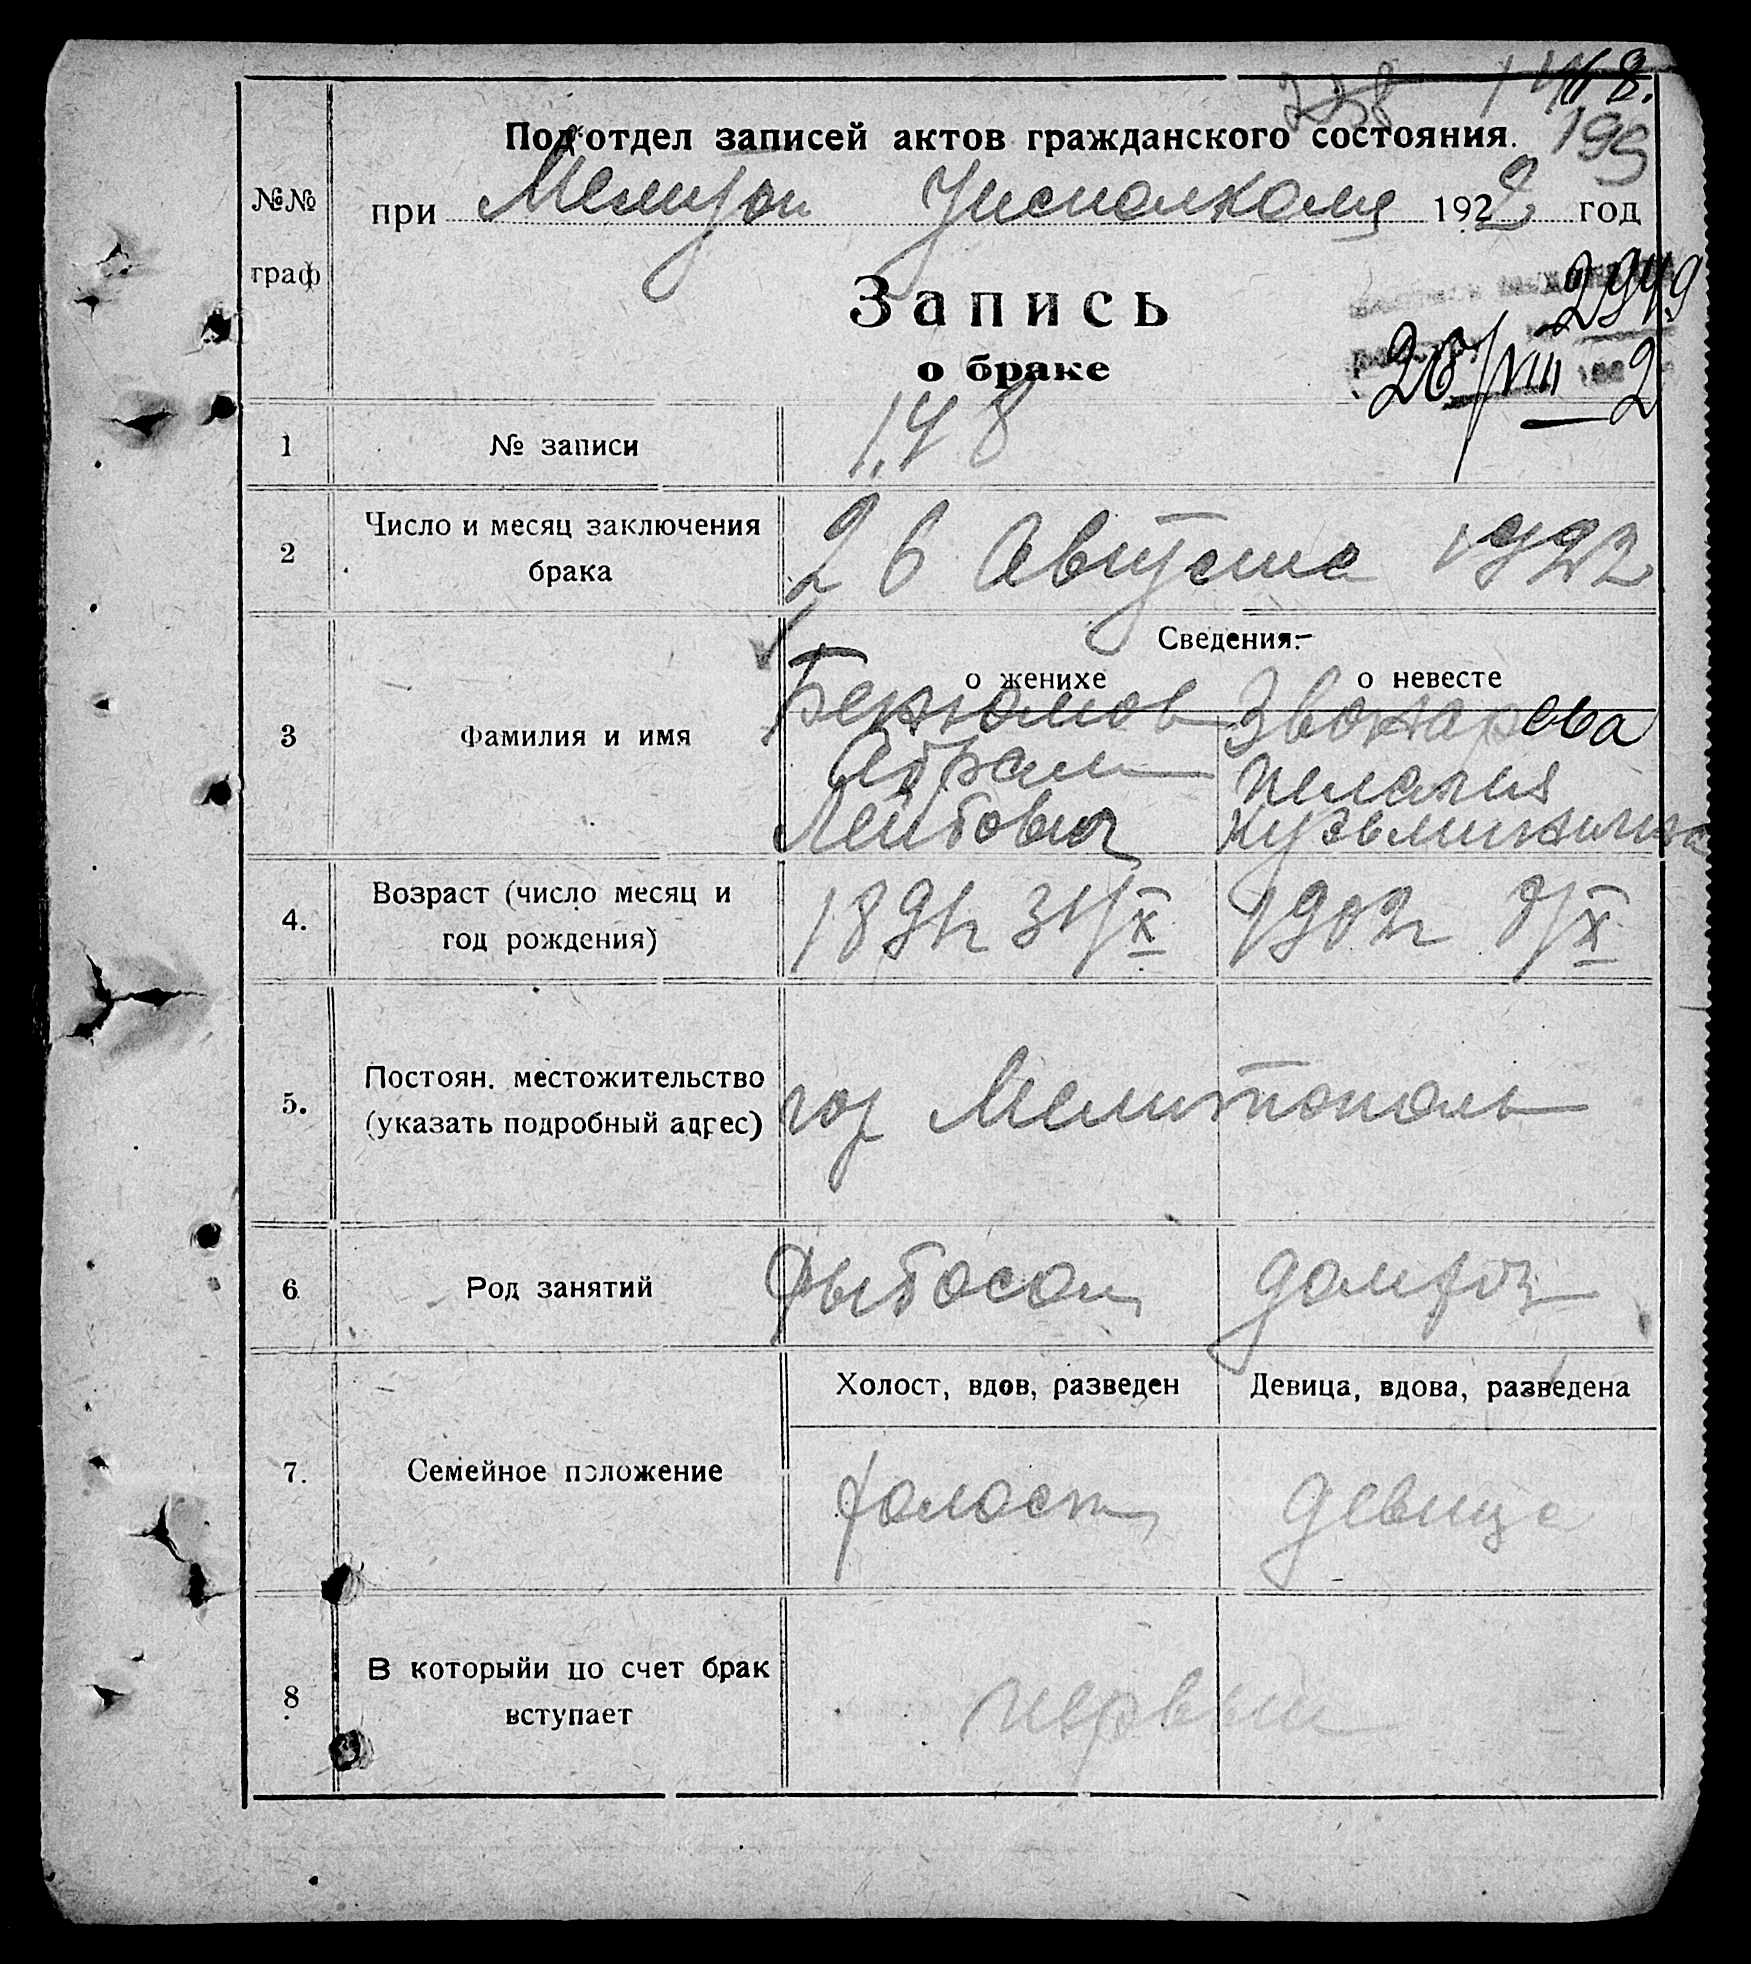 238 148.
Под'отдел записей актов гражданского состояния.
199
№№
при Мелитоп Уисполкома 1922 год
граф
2949
Запись
о браке
26/VIII 2
1 № записи 148
2 Число и месяц заключения
брака
26 Августа 1922
Сведения:
о женихе о невесте
3 Фамилия и имя
Бенюмов Звонарева
Абрам Пелагия
Лейбович Кузьминична
4. Возраст (число месяц и
год рождения)
1891г 31/X 1902г 9/X
5. Постоян. местожительство
(указать подробный адрес)
гор Мелитополь
6 Род занятий Рыбосол домхоз
Холост, вдов, разведен Девица, вдова, разведена
7. Семейное положение холост девица
8 В которыйи по счет брак
вступает
первый